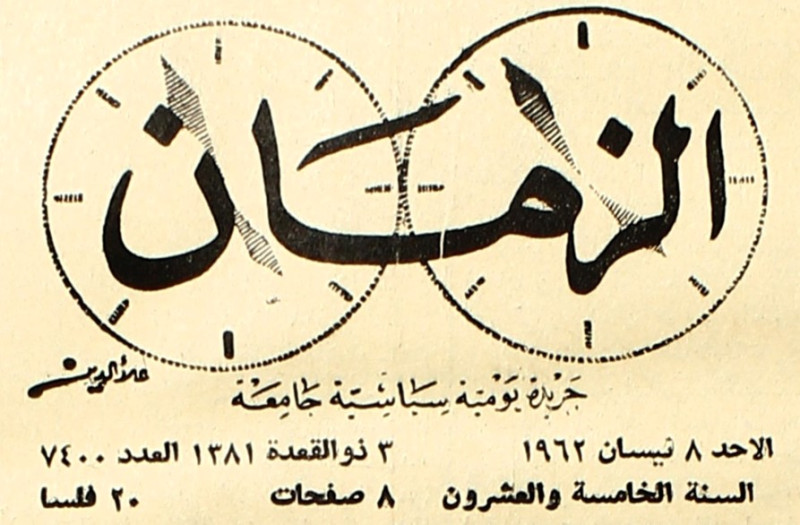 الزمان
علاء الدين
جريدة يومية سياسية جامعة
الاحد ٨ نيسان ١٩٦٢ ٣ ذو القعدة ١٣٨١ العدد ٧٤٠٠
السنة الخامسة والعشرون ٨ صفحات ٢٠ فلسا